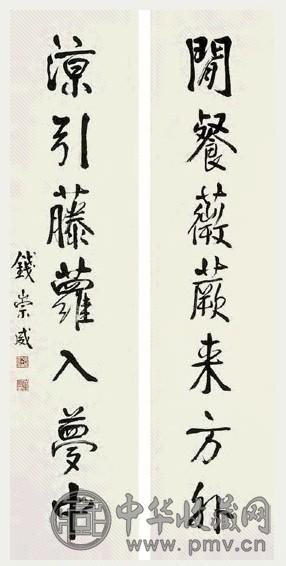 閒餐薇蕨来方外
涼引藤蘿入夢中
錢崇威
中华收藏网
www.pmv.cn